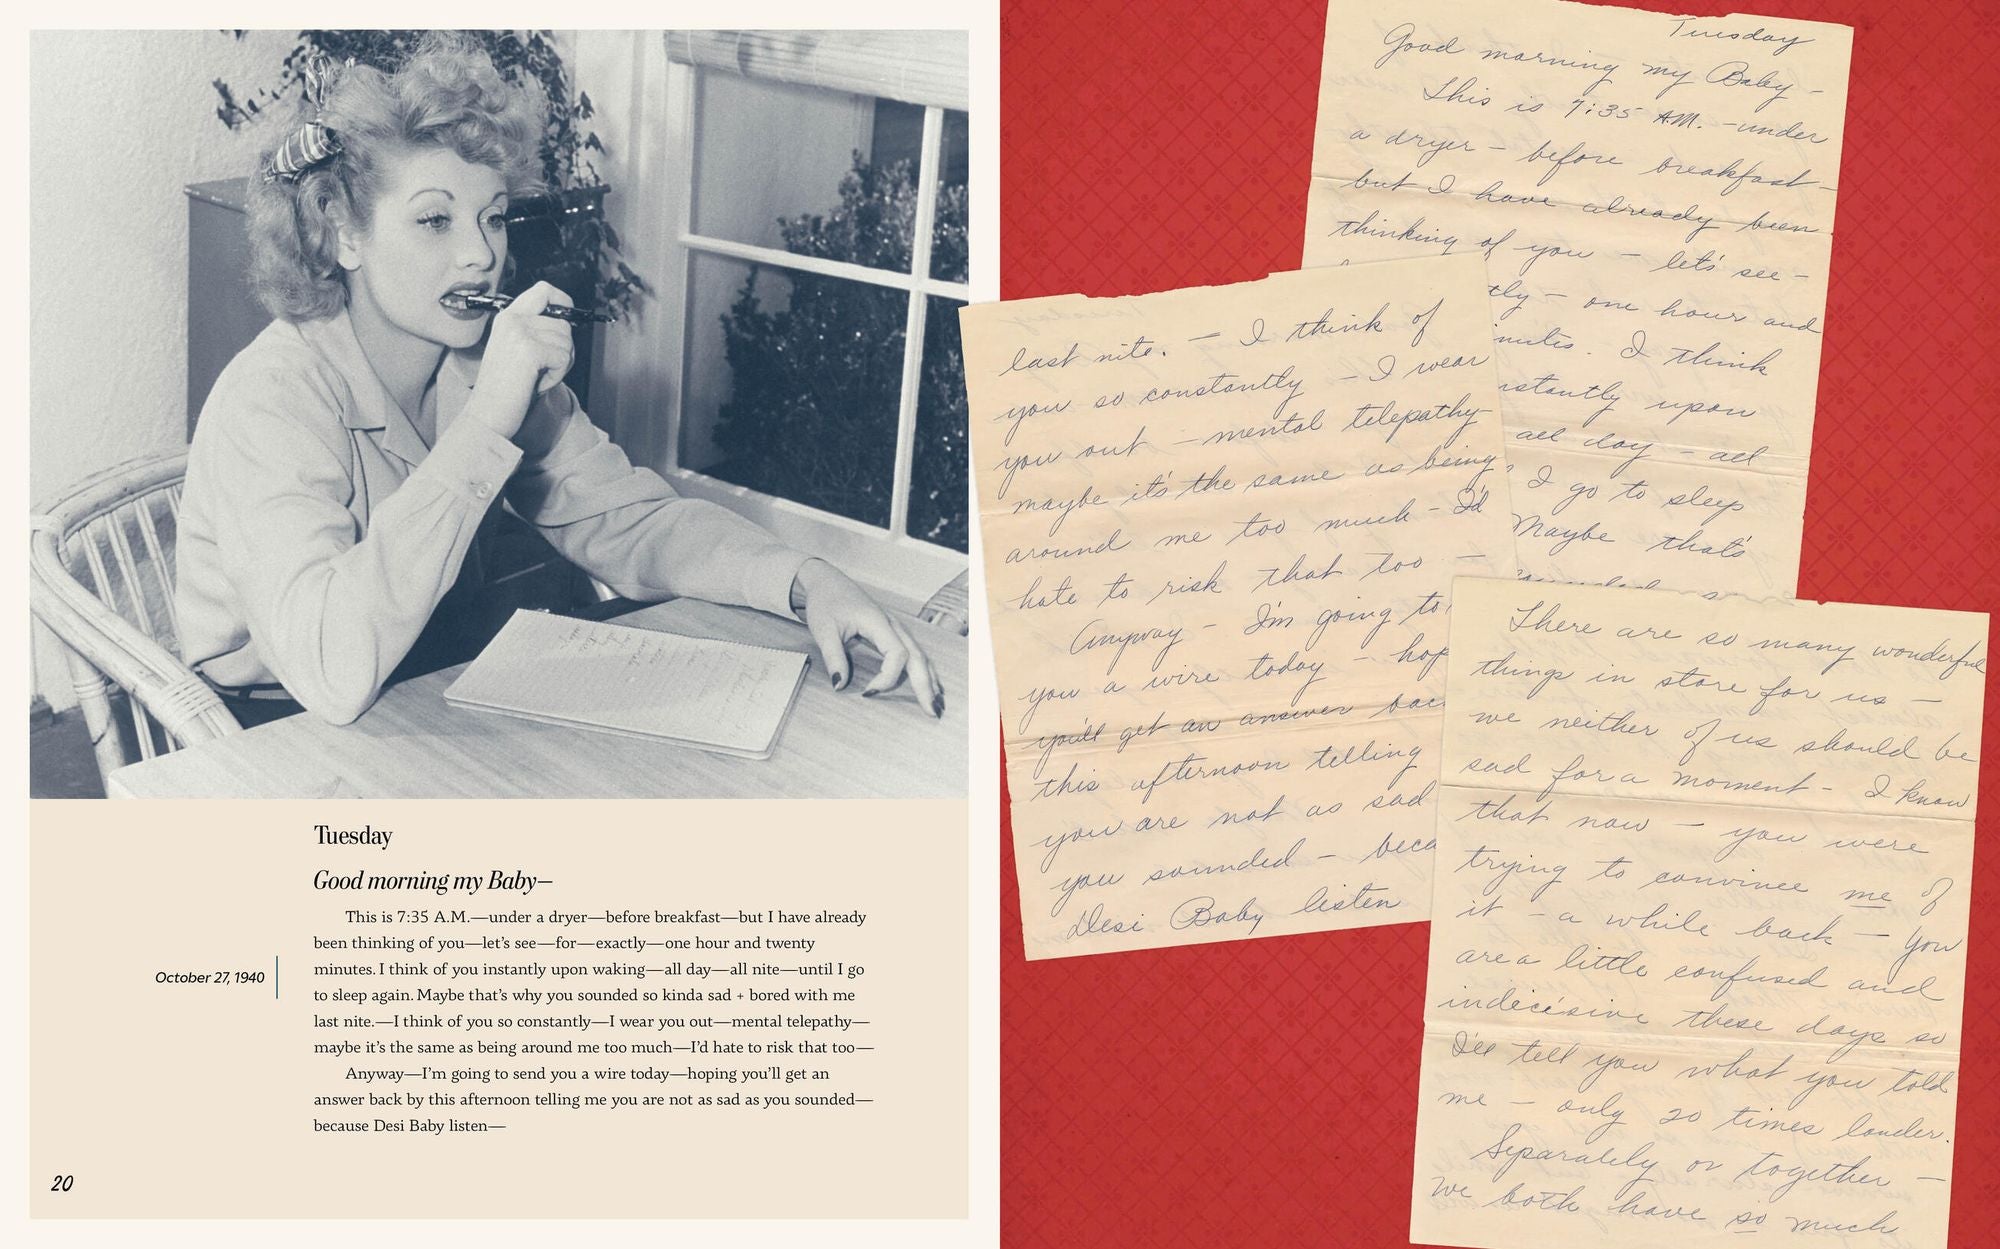 Tuesday
Good morning my Baby—
This is 7:35 A.M.—under a dryer—before breakfast—but I have already
been thinking of you—let's see—for—exactly—one hour and twenty
minutes. I think of you instantly upon waking—all day—all nite—until I go
to sleep again. Maybe that's why you sounded so kinda sad + bored with me
last nite.—I think of you so constantly—I wear you out—mental telepathy—
maybe it's the same as being around me too much—I'd hate to risk that too—
Anyway—I'm going to send you a wire today—hoping you'll get an
answer back by this afternoon telling me you are not as sad as you sounded—
because Desi Baby listen—
October 27, 1940
20
Tuesday
Good morning my Baby –
This is 7:35 A.M. – under
a dryer – before breakfast –
but I have already been
thinking of you – let's see –
tly – one hour and
nutes. I think
nstantly upon
all day – all
I go to sleep
Maybe that's
last nite. – I think of
you so constantly – I wear
you out – mental telepathy –
maybe it's the same as being
around me too much – I'd
hate to risk that too –
Anyway – I'm going to
you a wire today – hop
you'll get an answer bac
this afternoon telling
you are not as sad
you sounded – beca
Desi Baby listen
There are so many wonderful
things in store for us –
we neither of us should be
sad for a moment – I know
that now – you were
trying to convince me of
it – a while back – you
are a little confused and
indecisive these days so
I'll tell you what you told
me – only 20 times louder.
Separately or together –
we both have so much